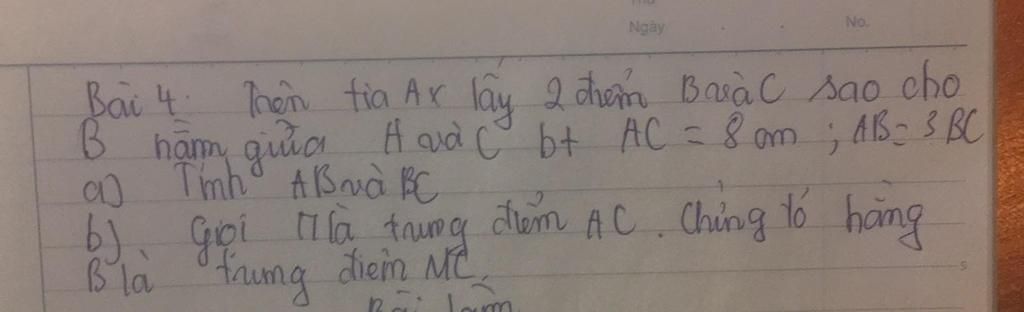 Ngày No.
Bài 4: Trên tia Ax lấy 2 điểm B và C sao cho
B nằm giữa A và C bt AC = 8 cm ; AB = 3 BC
a) Tính AB và BC
b). Gọi M là trung điểm AC. Chứng tỏ hằng
B là trung điểm MC.
Bài làm